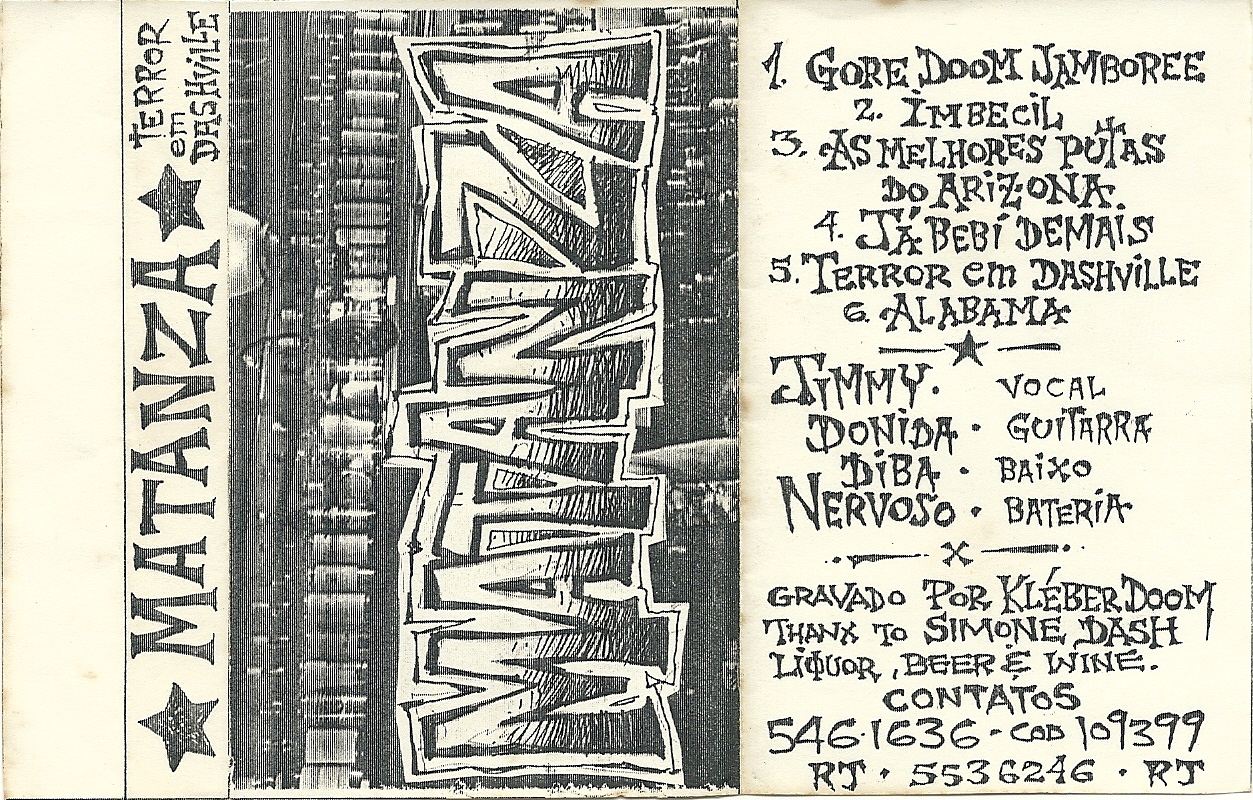 TERROR
em
DASHVILLE
★ MATANZA ★
MATANZA
1. GORE DOOM JAMBOREE
2. IMBECIL
3. AS MELHORES PUTAS
DO ARIZONA.
4. JÁ BEBÍ DEMAIS
5. TERROR em DASHVILLE
6. ALABAMA
★
JIMMY. VOCAL
DONIDA · GUITARRA
DIBA · BAIXO
NERVOSO · BATERIA
X
GRAVADO POR KLÉBER DOOM
THANX TO SIMONE DASH
LIQUOR, BEER E WINE.
CONTATOS
546·1636 - COD 109399
RJ · 5536246 · RJ